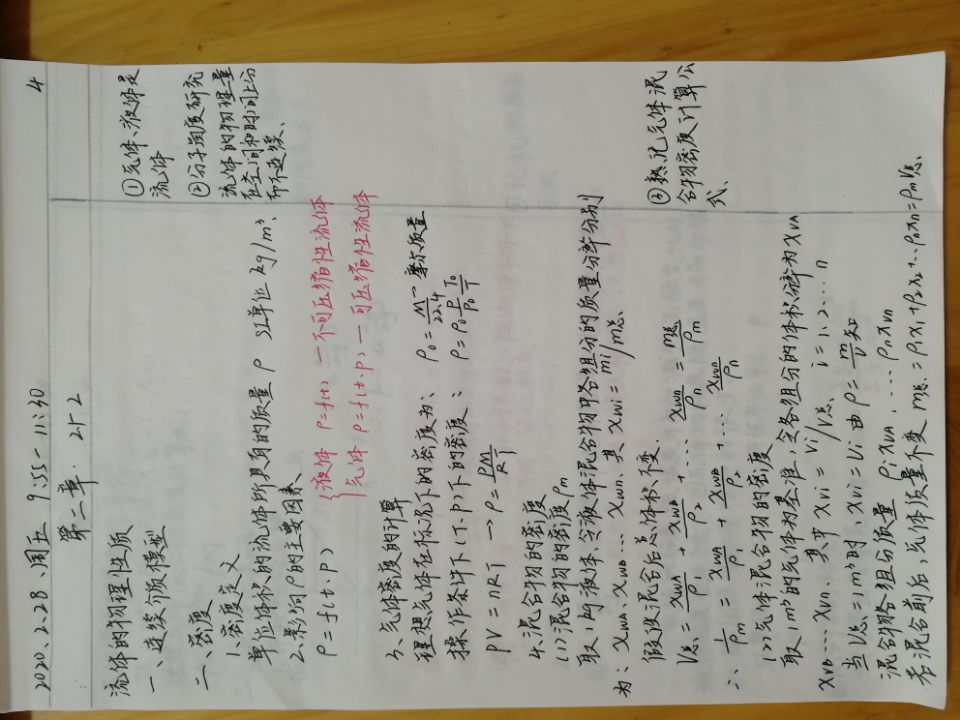 2020.2.28.周五 9:55-11:30 4
第二章. 2r2
流体的物理性质
一、连续介质模型
二、密度
1.密度定义
单位体积的流体所具有的质量 ρ SI单位 kg/m³.
2.影响ρ的主要因素.
ρ=f(t.P)
{液体 ρ=f(t) —不可压缩性流体
气体 ρ=f(t.P) —可压缩性流体
3、气体密度的计算
理想气体在标况下的密度为: ρ₀=M/22.4 → 摩尔质量
操作条件下(T.P)下的密度: ρ=ρ₀ P/P₀ T₀/T
PV=nRT → ρ=PM/RT
4.混合物的密度
(1)混合物的密度ρm
取1kg液体,令液体混合物中各组分的质量分率分别
为: xwA、xwB... xwn. 其 xwi=mi/m总、
假设混合后总体积不变.
V总=xwA/ρ₁+xwB/ρ₂+... xwn/ρn=m总/ρm
∴ 1/ρm=xwA/ρ₁+xwB/ρ₂+... xwn/ρn
(2)气体混合物的密度
取1m³的气体为基准,令各组分的体积分率为xvA
xvB...xvn. 其中xvi=Vi/V总. i=1.2...n
当V总=1m³时,xvi=Vi 由ρ=m/V知
混合物各组分质量 ρ₁xvA, ... ρnxvn
若混合前后,气体质量不变 m总.=ρ₁x₁+ρ₂x₂+..ρnxn=ρmV总.
①气体、液体是
流体
②分子角度研究
流体的物理量
在空间和时间上分
布不连续、
③熟记气体混
合物密度计算公
式、